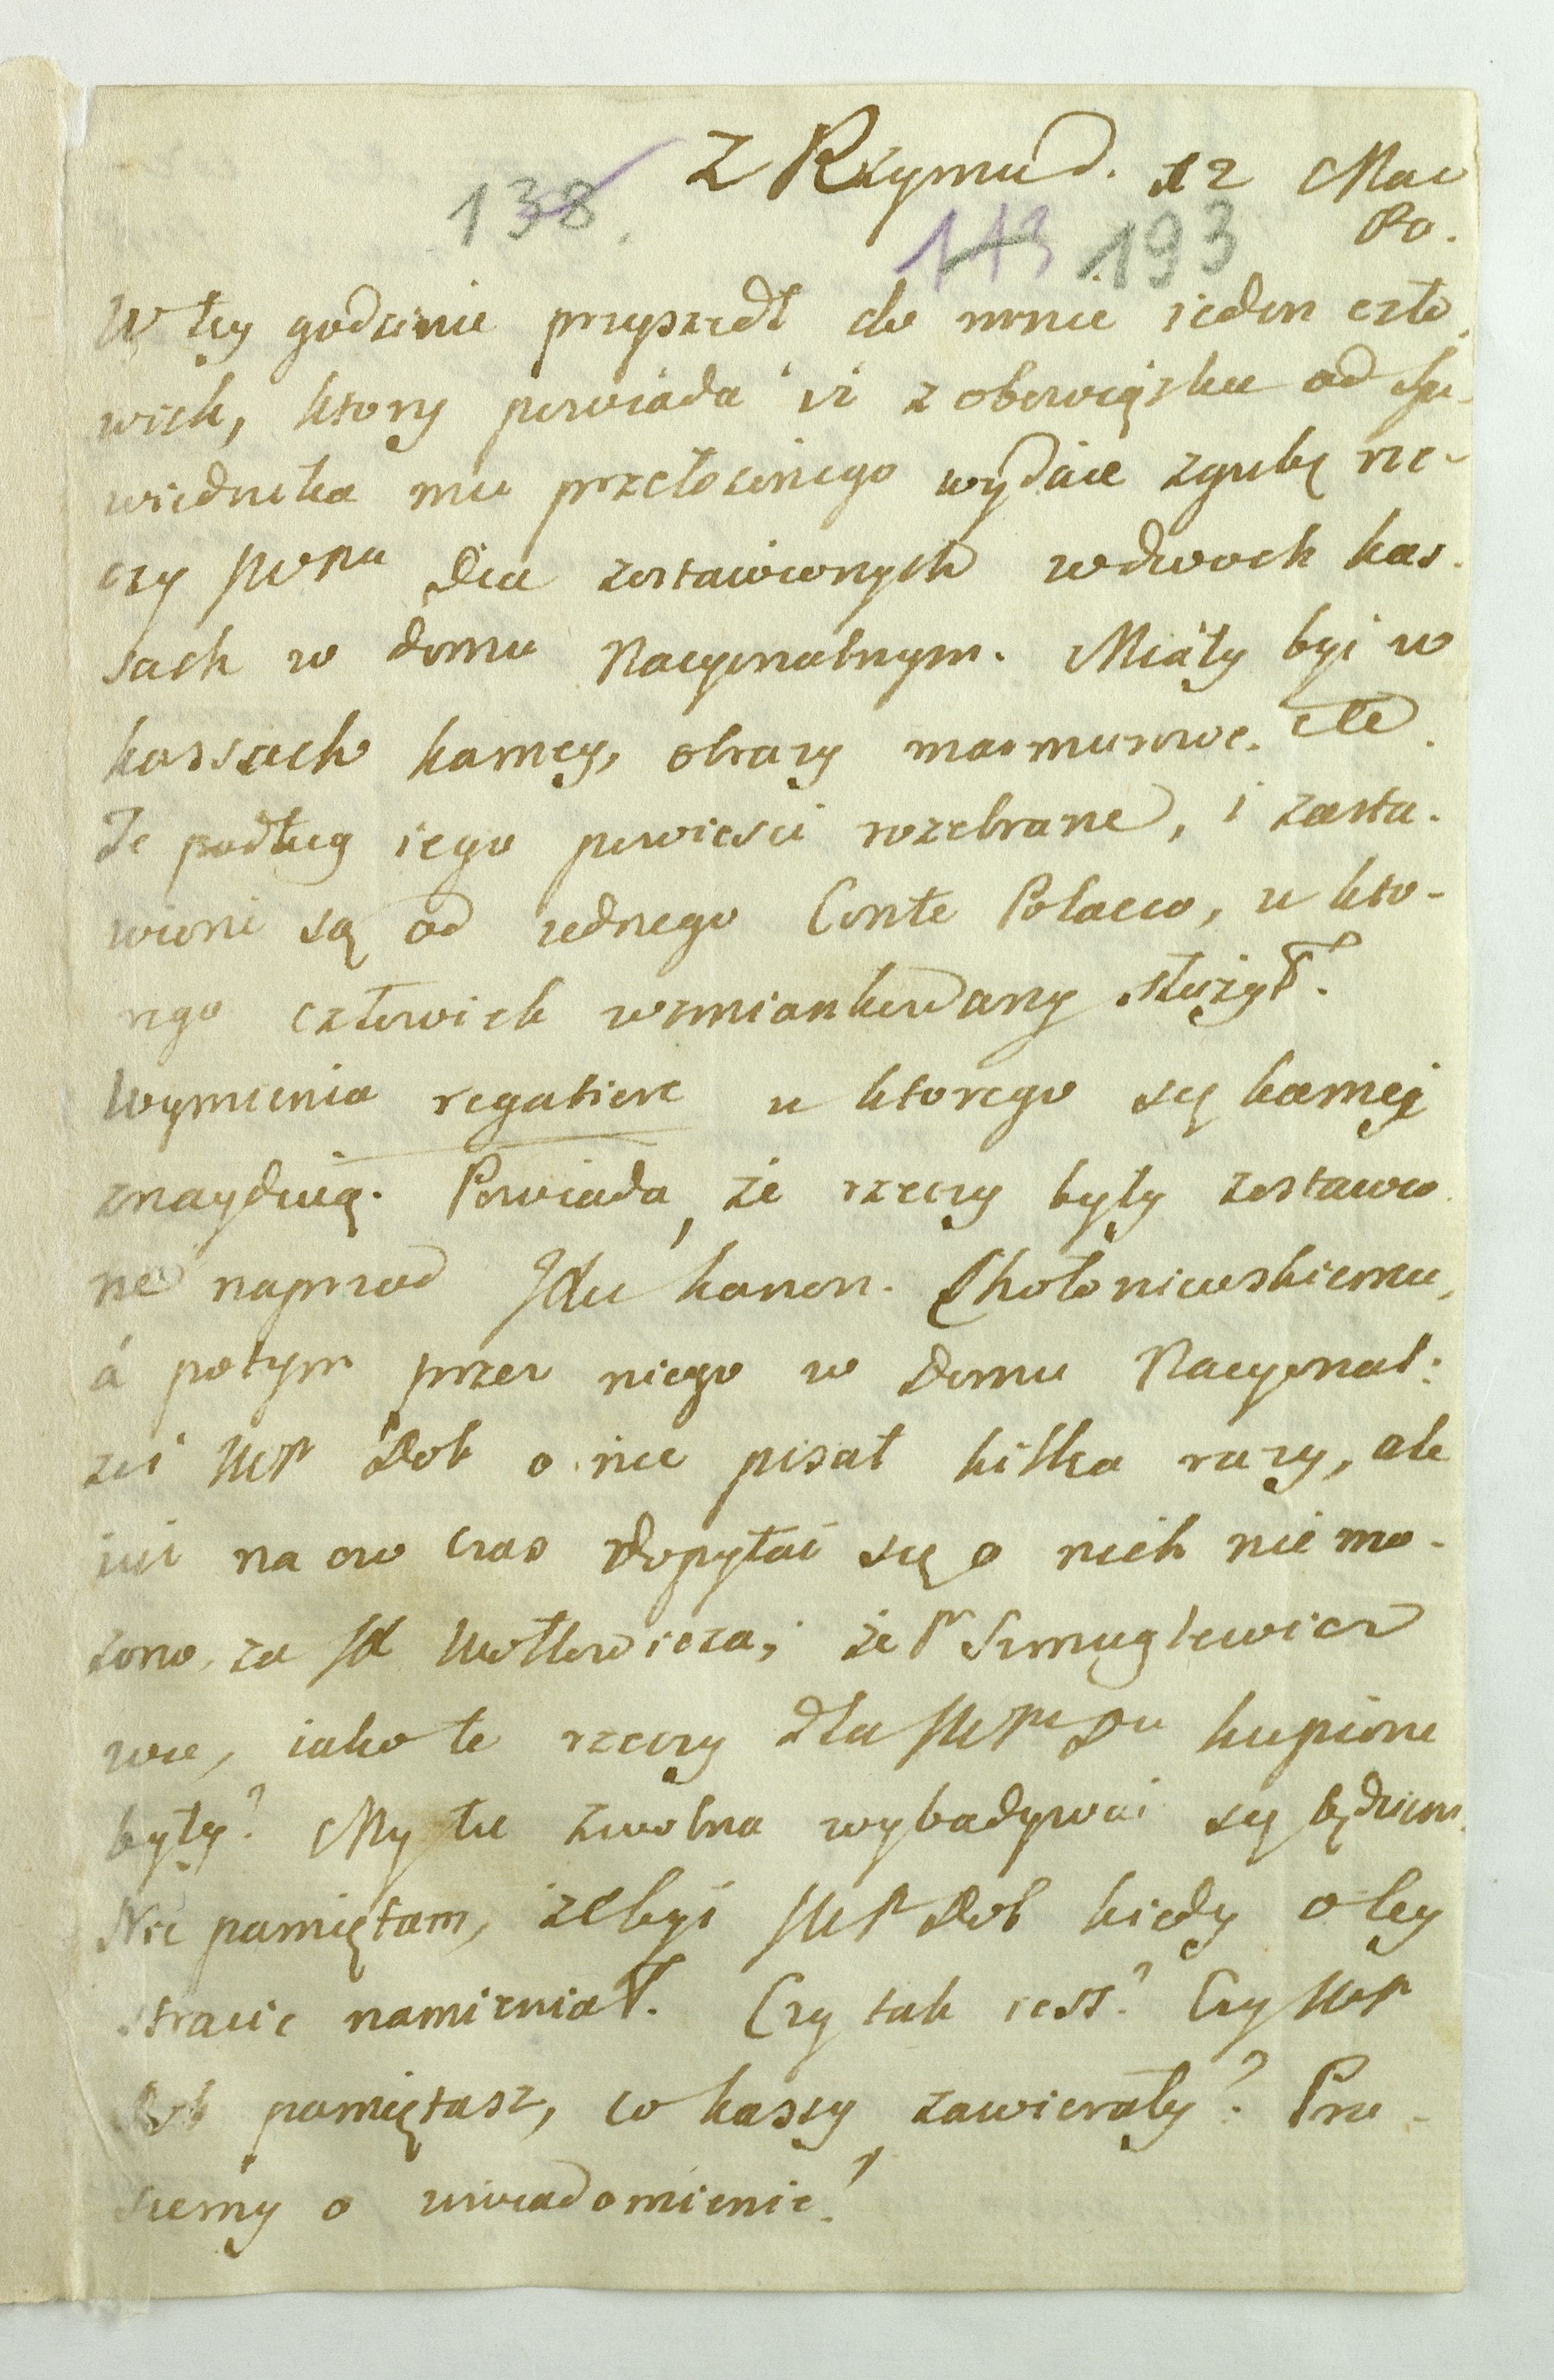 Z Rzymu d. 12 Mar
80.
138.
113 193
W tey godzinie przyszedł do mnie ieden czło-
wiek, ktory powiada iż z obowiązku od spo-
wiednika mu przełożonego wydaie zgubę rze-
czy JWPu Du zostawionych w dwoch kas-
sach w domu Nacyonalnym. Miały być w
kassach kamey, obrazy marmurowe. etc.
Te podług iego powieści rozebrane, i zasta-
wione są od iednego Conte Polacco, u kto-
rego człowiek wzmiankowany służył.
Wymienia regatiere u ktorego się kamei
znayduią. Powiada, że rzeczy były zostawio-
ne naprzod Jdu kanon. Chołoniewskiemu,
á potym przez niego w Domu Nacyonal:
żeś WP Dob o nie pisał kilka razy, ale
iuż na ow czas dopytać się o nich nie mo-
żono, za Jd Wołłowicza; że Pr Szmuglewicz
wie, iako te rzeczy dla JWPa Du kupione
były? My tu zwolna wybadywać się będziem.
Nie pamiętam, żebyś JWP Dob kiedy o tey
stracie namieniał. Czy tak iest? Czy WP
Dob pamiętasz, co kassy zawierały? Pro-
siemy o uwiadomienie!